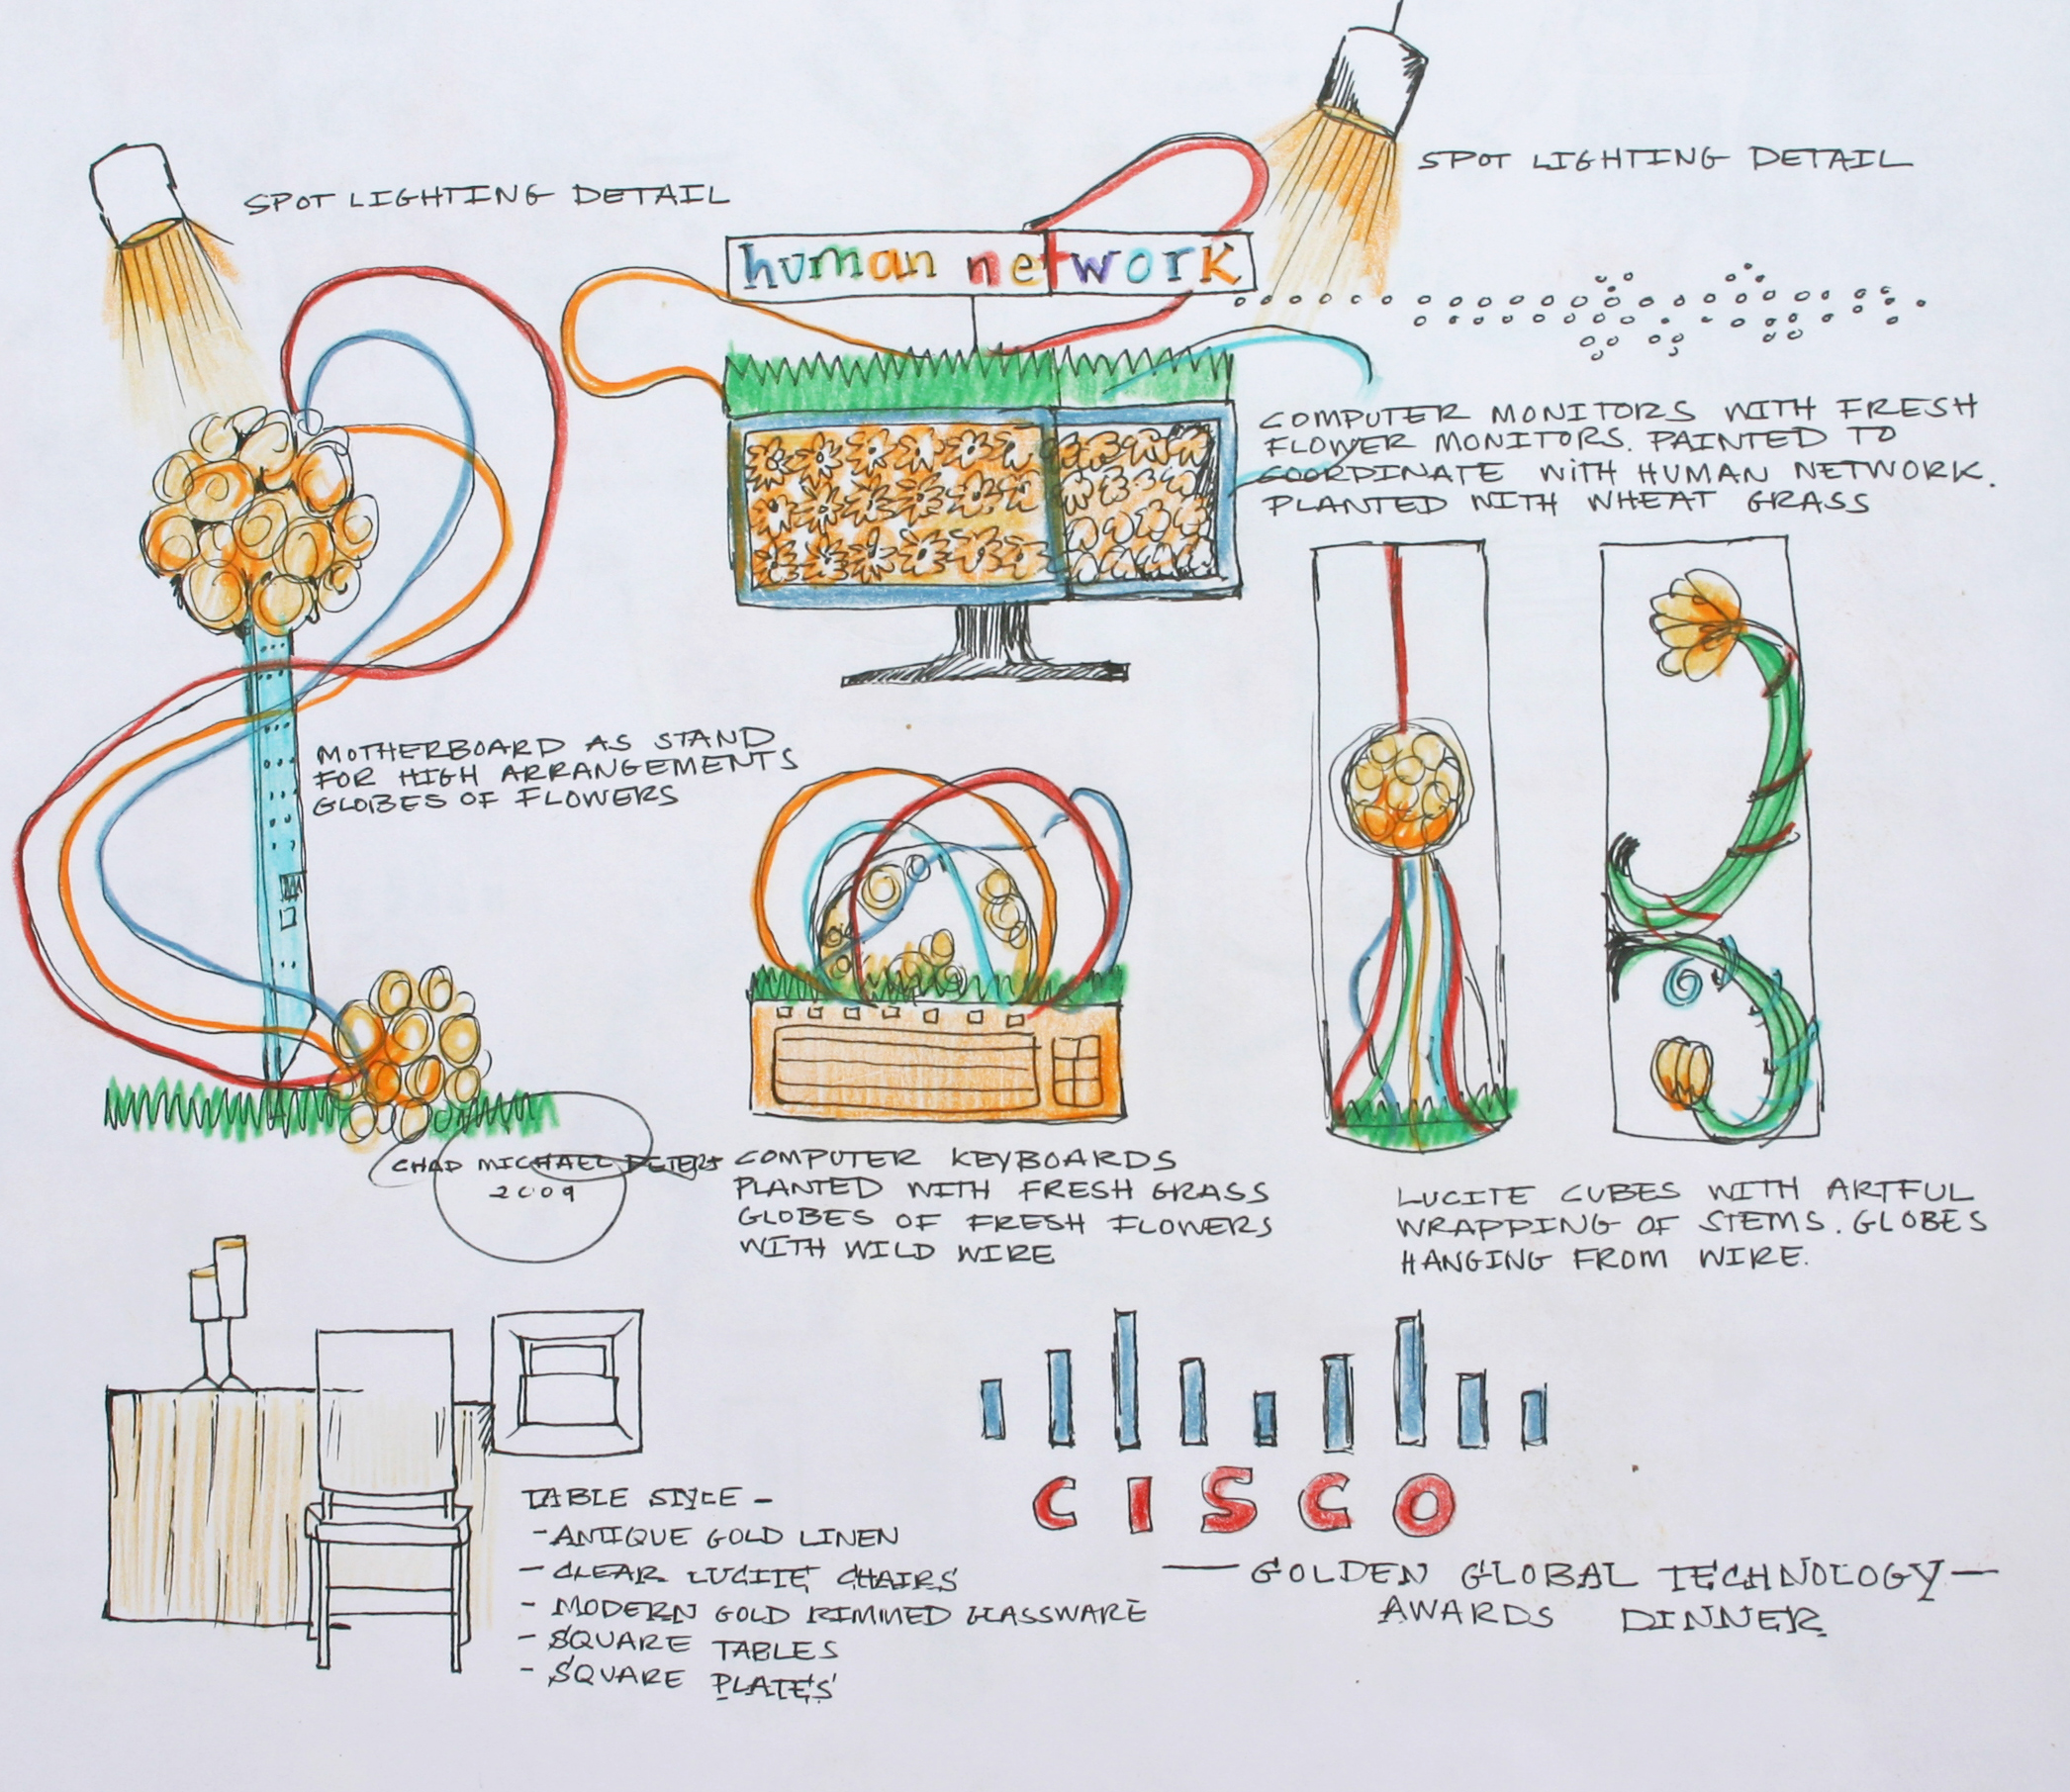 SPOT LIGHTING DETAIL
SPOT LIGHTING DETAIL
human network
COMPUTER MONITORS WITH FRESH
FLOWER MONITORS. PAINTED TO
COORDINATE WITH HUMAN NETWORK.
PLANTED WITH WHEAT GRASS
MOTHERBOARD AS STAND
FOR HIGH ARRANGEMENTS
GLOBES OF FLOWERS
CHAD MICHAEL PETERS
2009
COMPUTER KEYBOARDS
PLANTED WITH FRESH GRASS
GLOBES OF FRESH FLOWERS
WITH WILD WIRE
LUCITE CUBES WITH ARTFUL
WRAPPING OF STEMS. GLOBES
HANGING FROM WIRE.
TABLE STYLE -
- ANTIQUE GOLD LINEN
- CLEAR LUCITE CHAIRS
- MODERN GOLD RIMMED GLASSWARE
- SQUARE TABLES
- SQUARE PLATES
CISCO
— GOLDEN GLOBAL TECHNOLOGY —
AWARDS DINNER